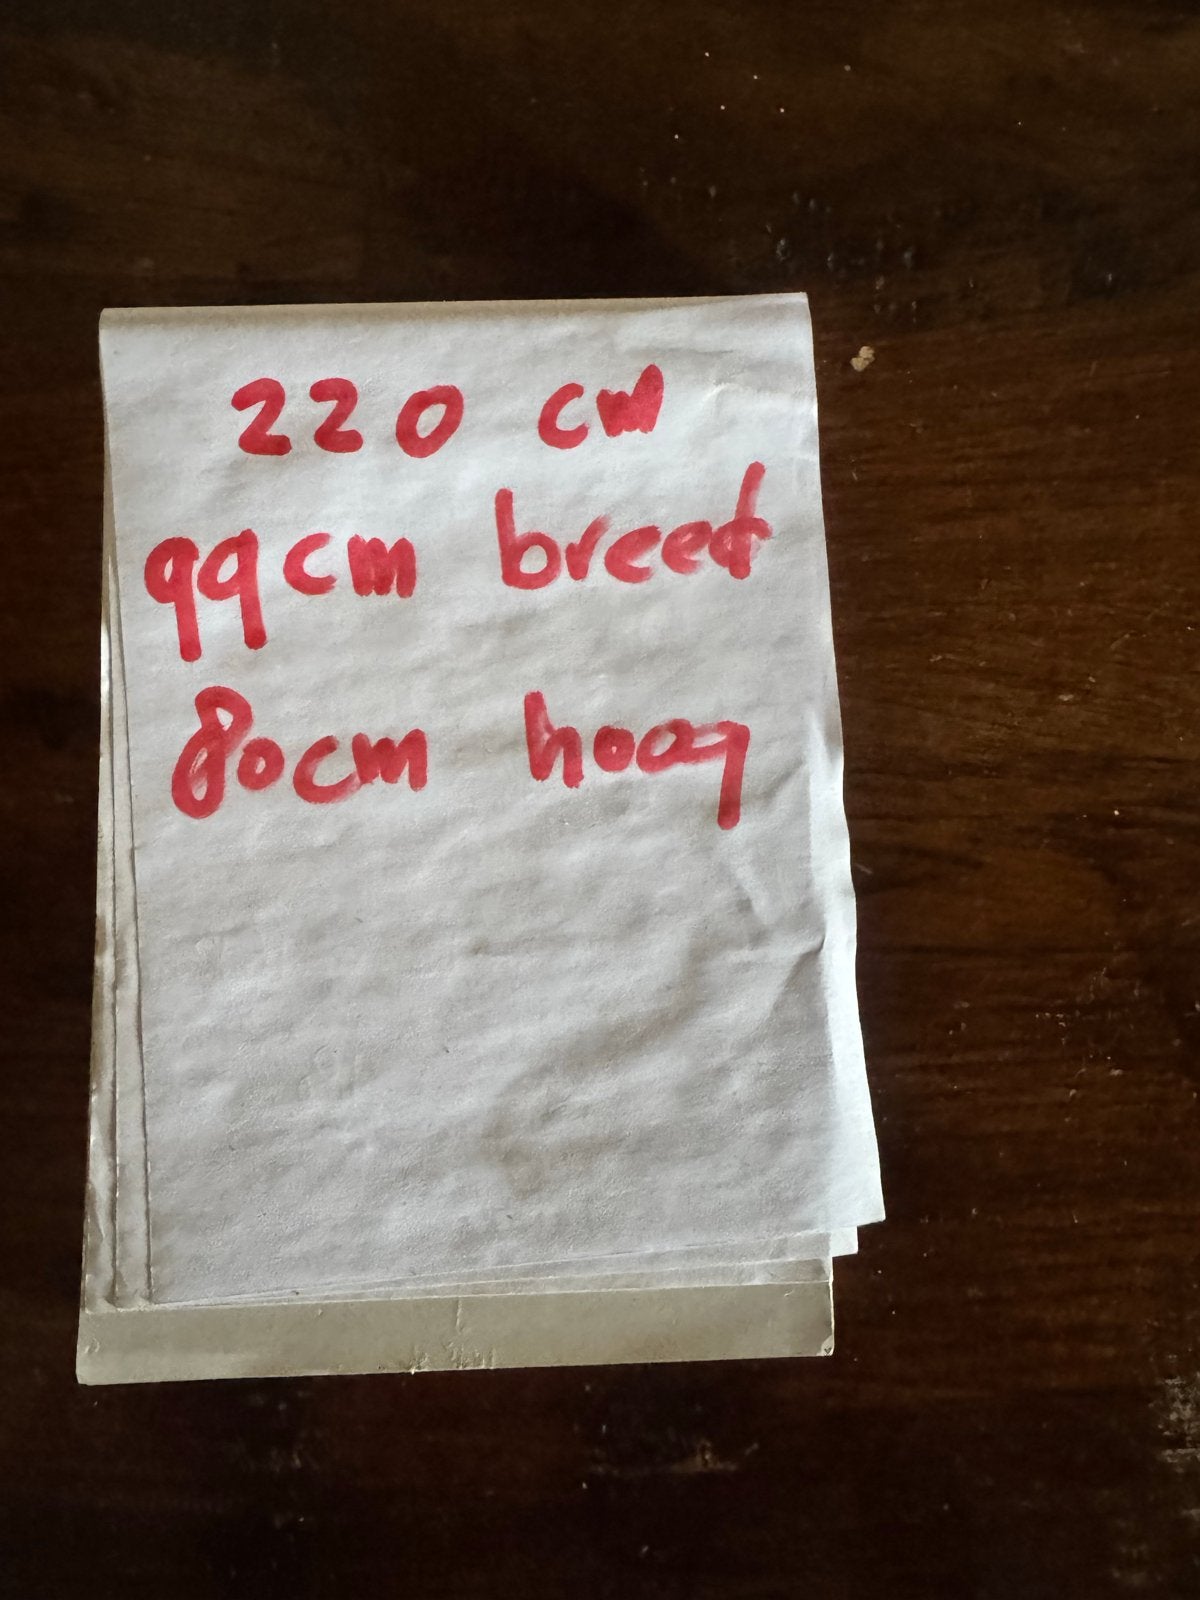 220 cm
99cm breed
80cm hoog